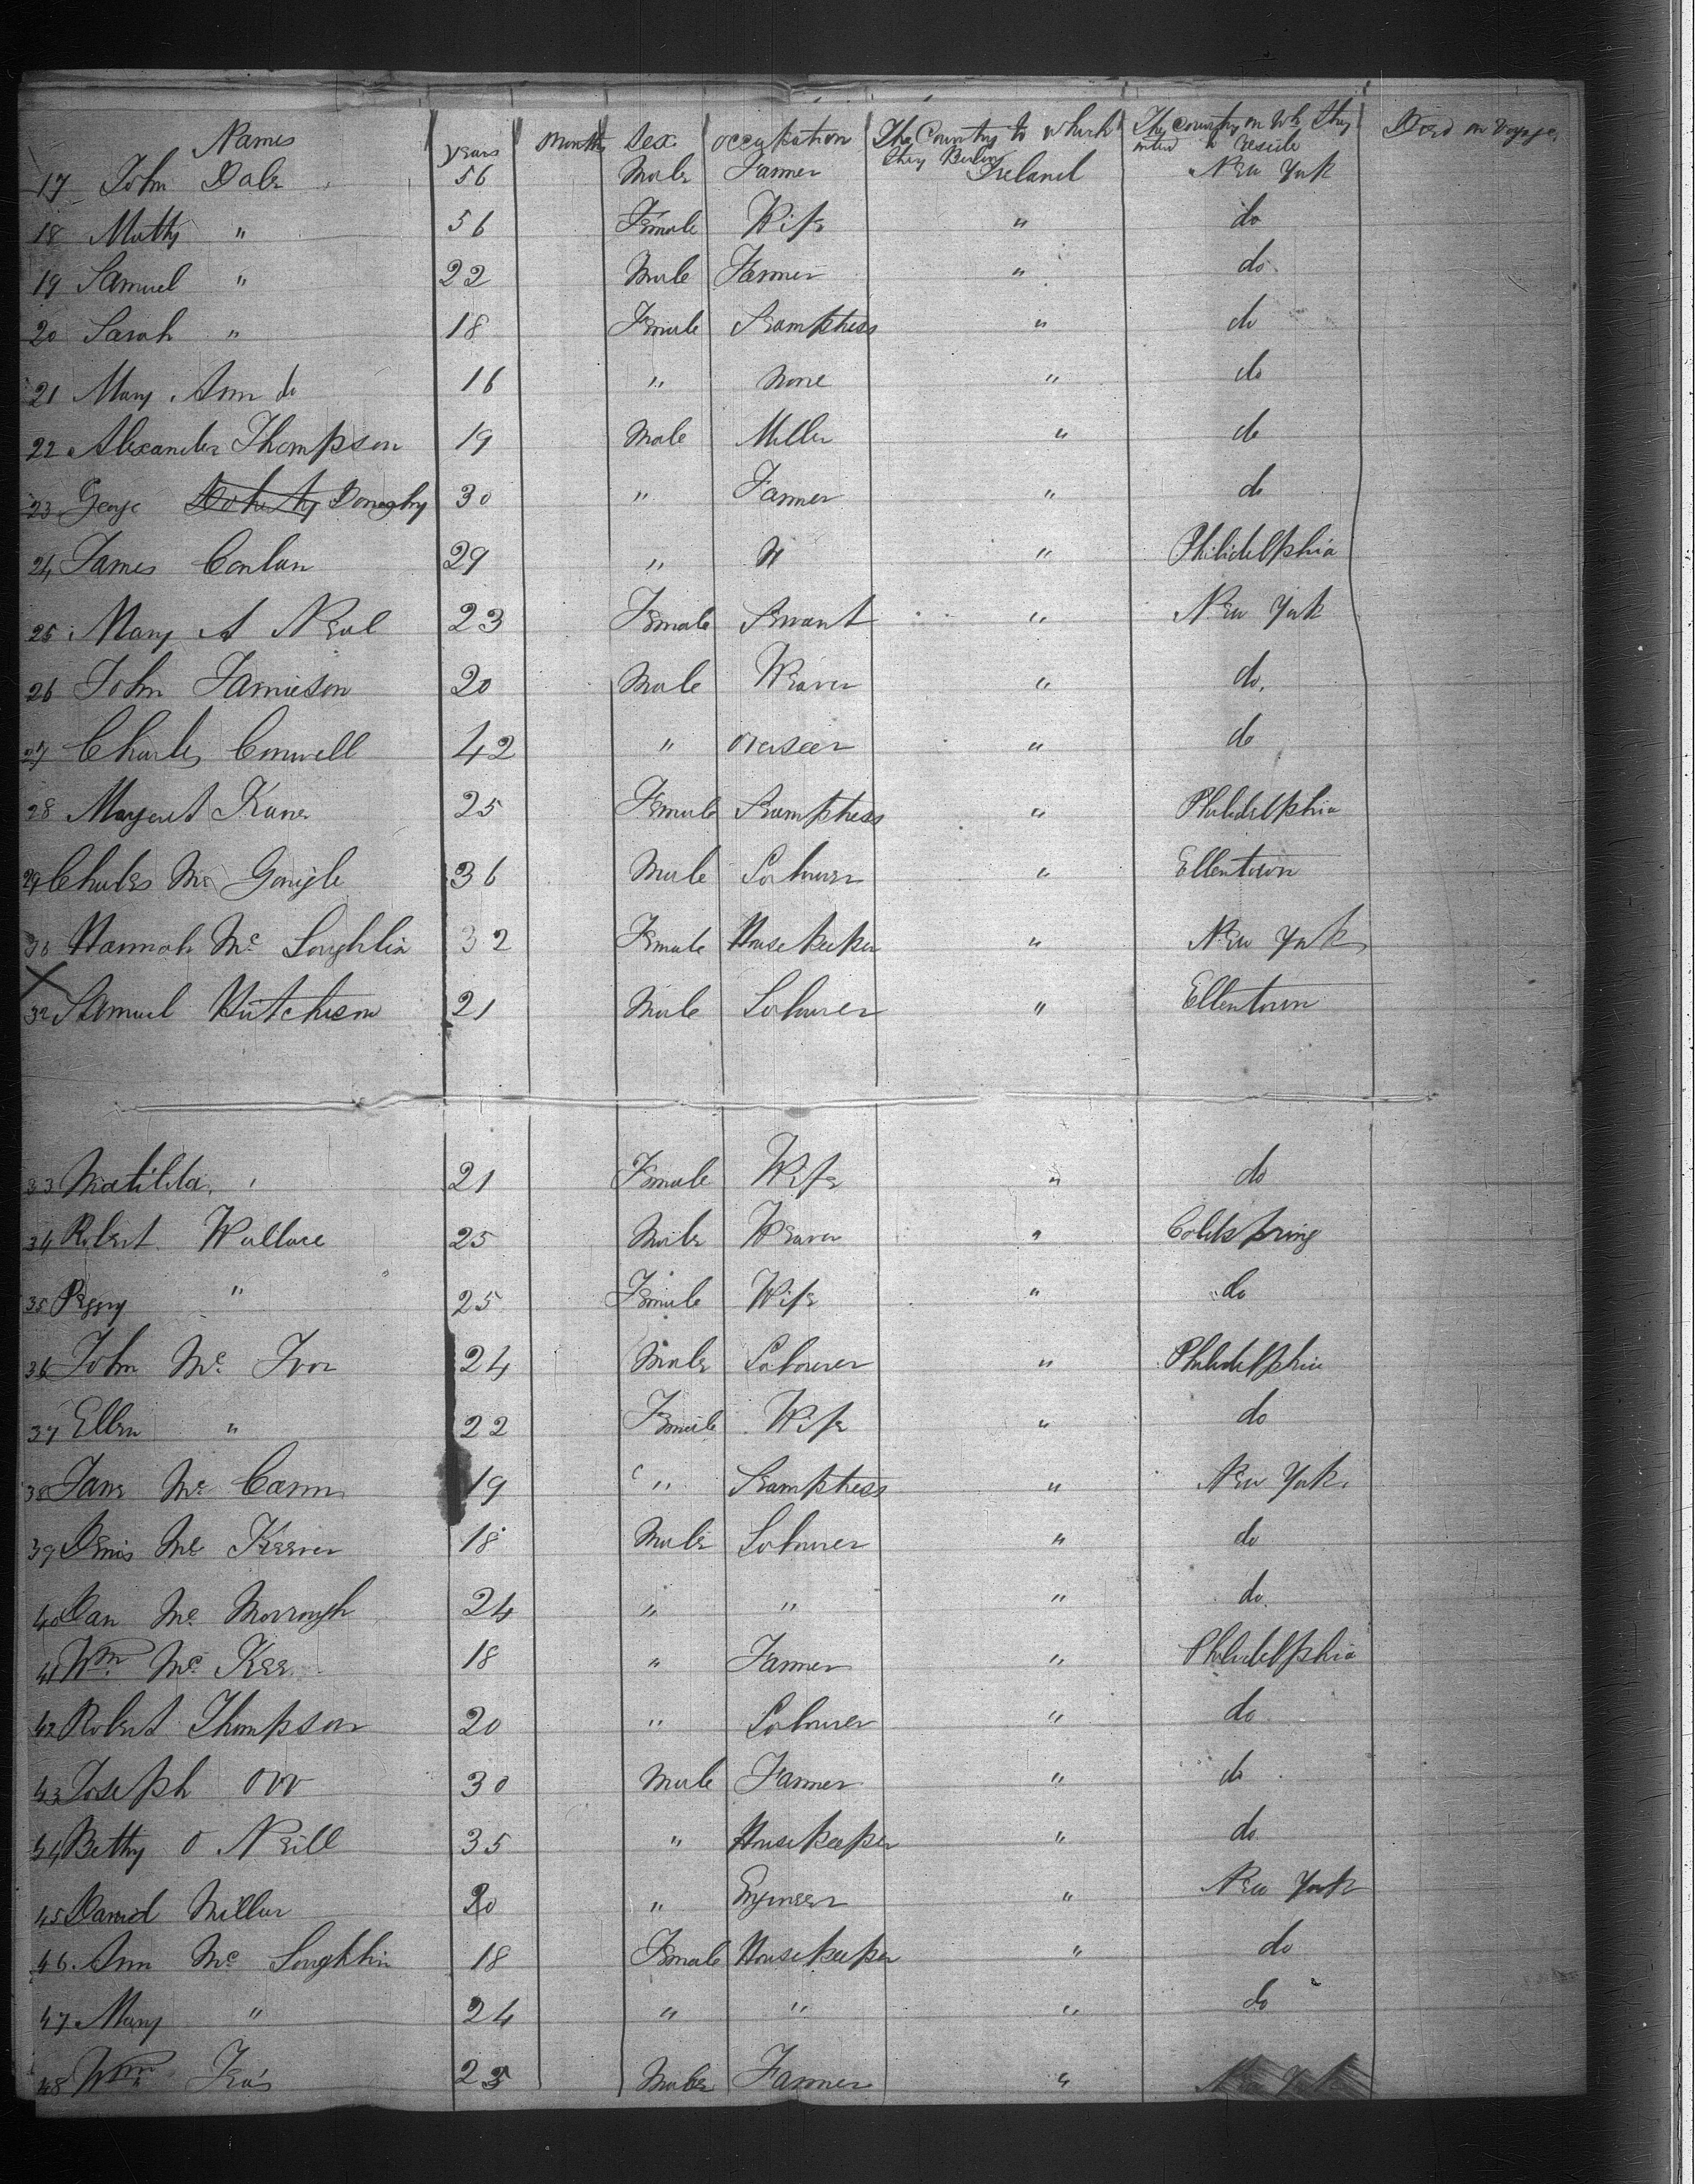 Names years Months Sex occupation The Country to which they Belong The Country in Wh they intend to reside Died on Voyage
17 John Dale 56 Male Farmer Ireland New York
18 Matty " 56 Female Wife " do
19 Samuel " 22 Male Farmer " do
20 Sarah " 18 Female Seamptress " do
21 Mary Ann do 16 " None " do
22 Alexander Thompson 19 Male Miller " do
23 George Doherty Donaghy 30 " Farmer " do
24 James Conlan 29 " " " Philidelphia
25 Mary A Neal 23 Female Servant " New York
26 John Jamieson 20 Male Weaver " do.
27 Charles Conwell 42 " overseer " do
28 Margaret Kane 25 Female Seamptress " Philidelphia
29 Charles Mc Gonigle 36 Male Labourer " Ellentown
30 Hannah Mc Loughlin 32 Female Housekeeper " New York
X
32 Samuel Hutchison 21 Male Labourer " Ellentown
33 Matilda " 21 Female Wife " do
34 Robert Wallace 25 Male Weaver " Coldspring
35 Peggy " 25 Female Wife " do
36 John Mc Ivor 24 Male Labourer " Philidelphia
37 Ellen " 22 Female Wife " do
38 Jane Mc Cann 19 " Seamptress " New York
39 Denis Mc Keever 18 Male Labourer " do
40 Dan Mc Morrough 24 " " " do.
41 Wm Mc Kee 18 " Farmer " Philidelphia
42 Robert Thompson 20 " Labourer " do
43 Joseph Orr 30 Male Farmer " do
44 Betty O Neill 35 " Housekeeper " do
45 David Millar 20 " Engineer " New York
46 Ann Mc Loughlin 18 Female Housekeeper " do
47 Mary " 24 " " " do
48 Wm 25 Male Farmer " New York